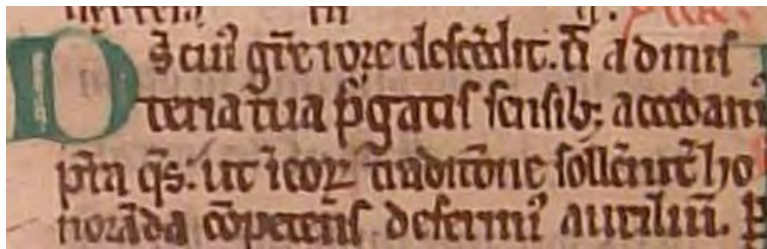 Ds̄ cuiꝰ gr̄e rore descēdit. ut̄ ad mis
teria tua p̄gatis sensibꝫ accedamꝰ
p̄ta q̄s. ut ī eoꝝ traditōne sollēnit̄ ho
norāda cōpetens deferamꝰ auxiliū.